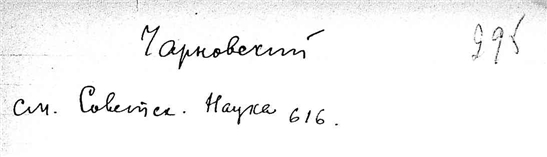 Чарновский 995
см. Советск. Наука 616.